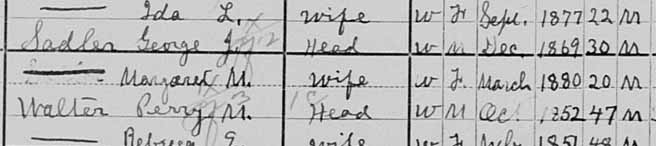 Ida L. Wife W F Sept. 1877 22 M
Sadler George J. Head W M Dec. 1869 30 M
Margaret M. Wife W F March 1880 20 M
Walter Perry M. Head W M Oc. 1852 47 M
Rebecca E. Wife W F 1851 48 M